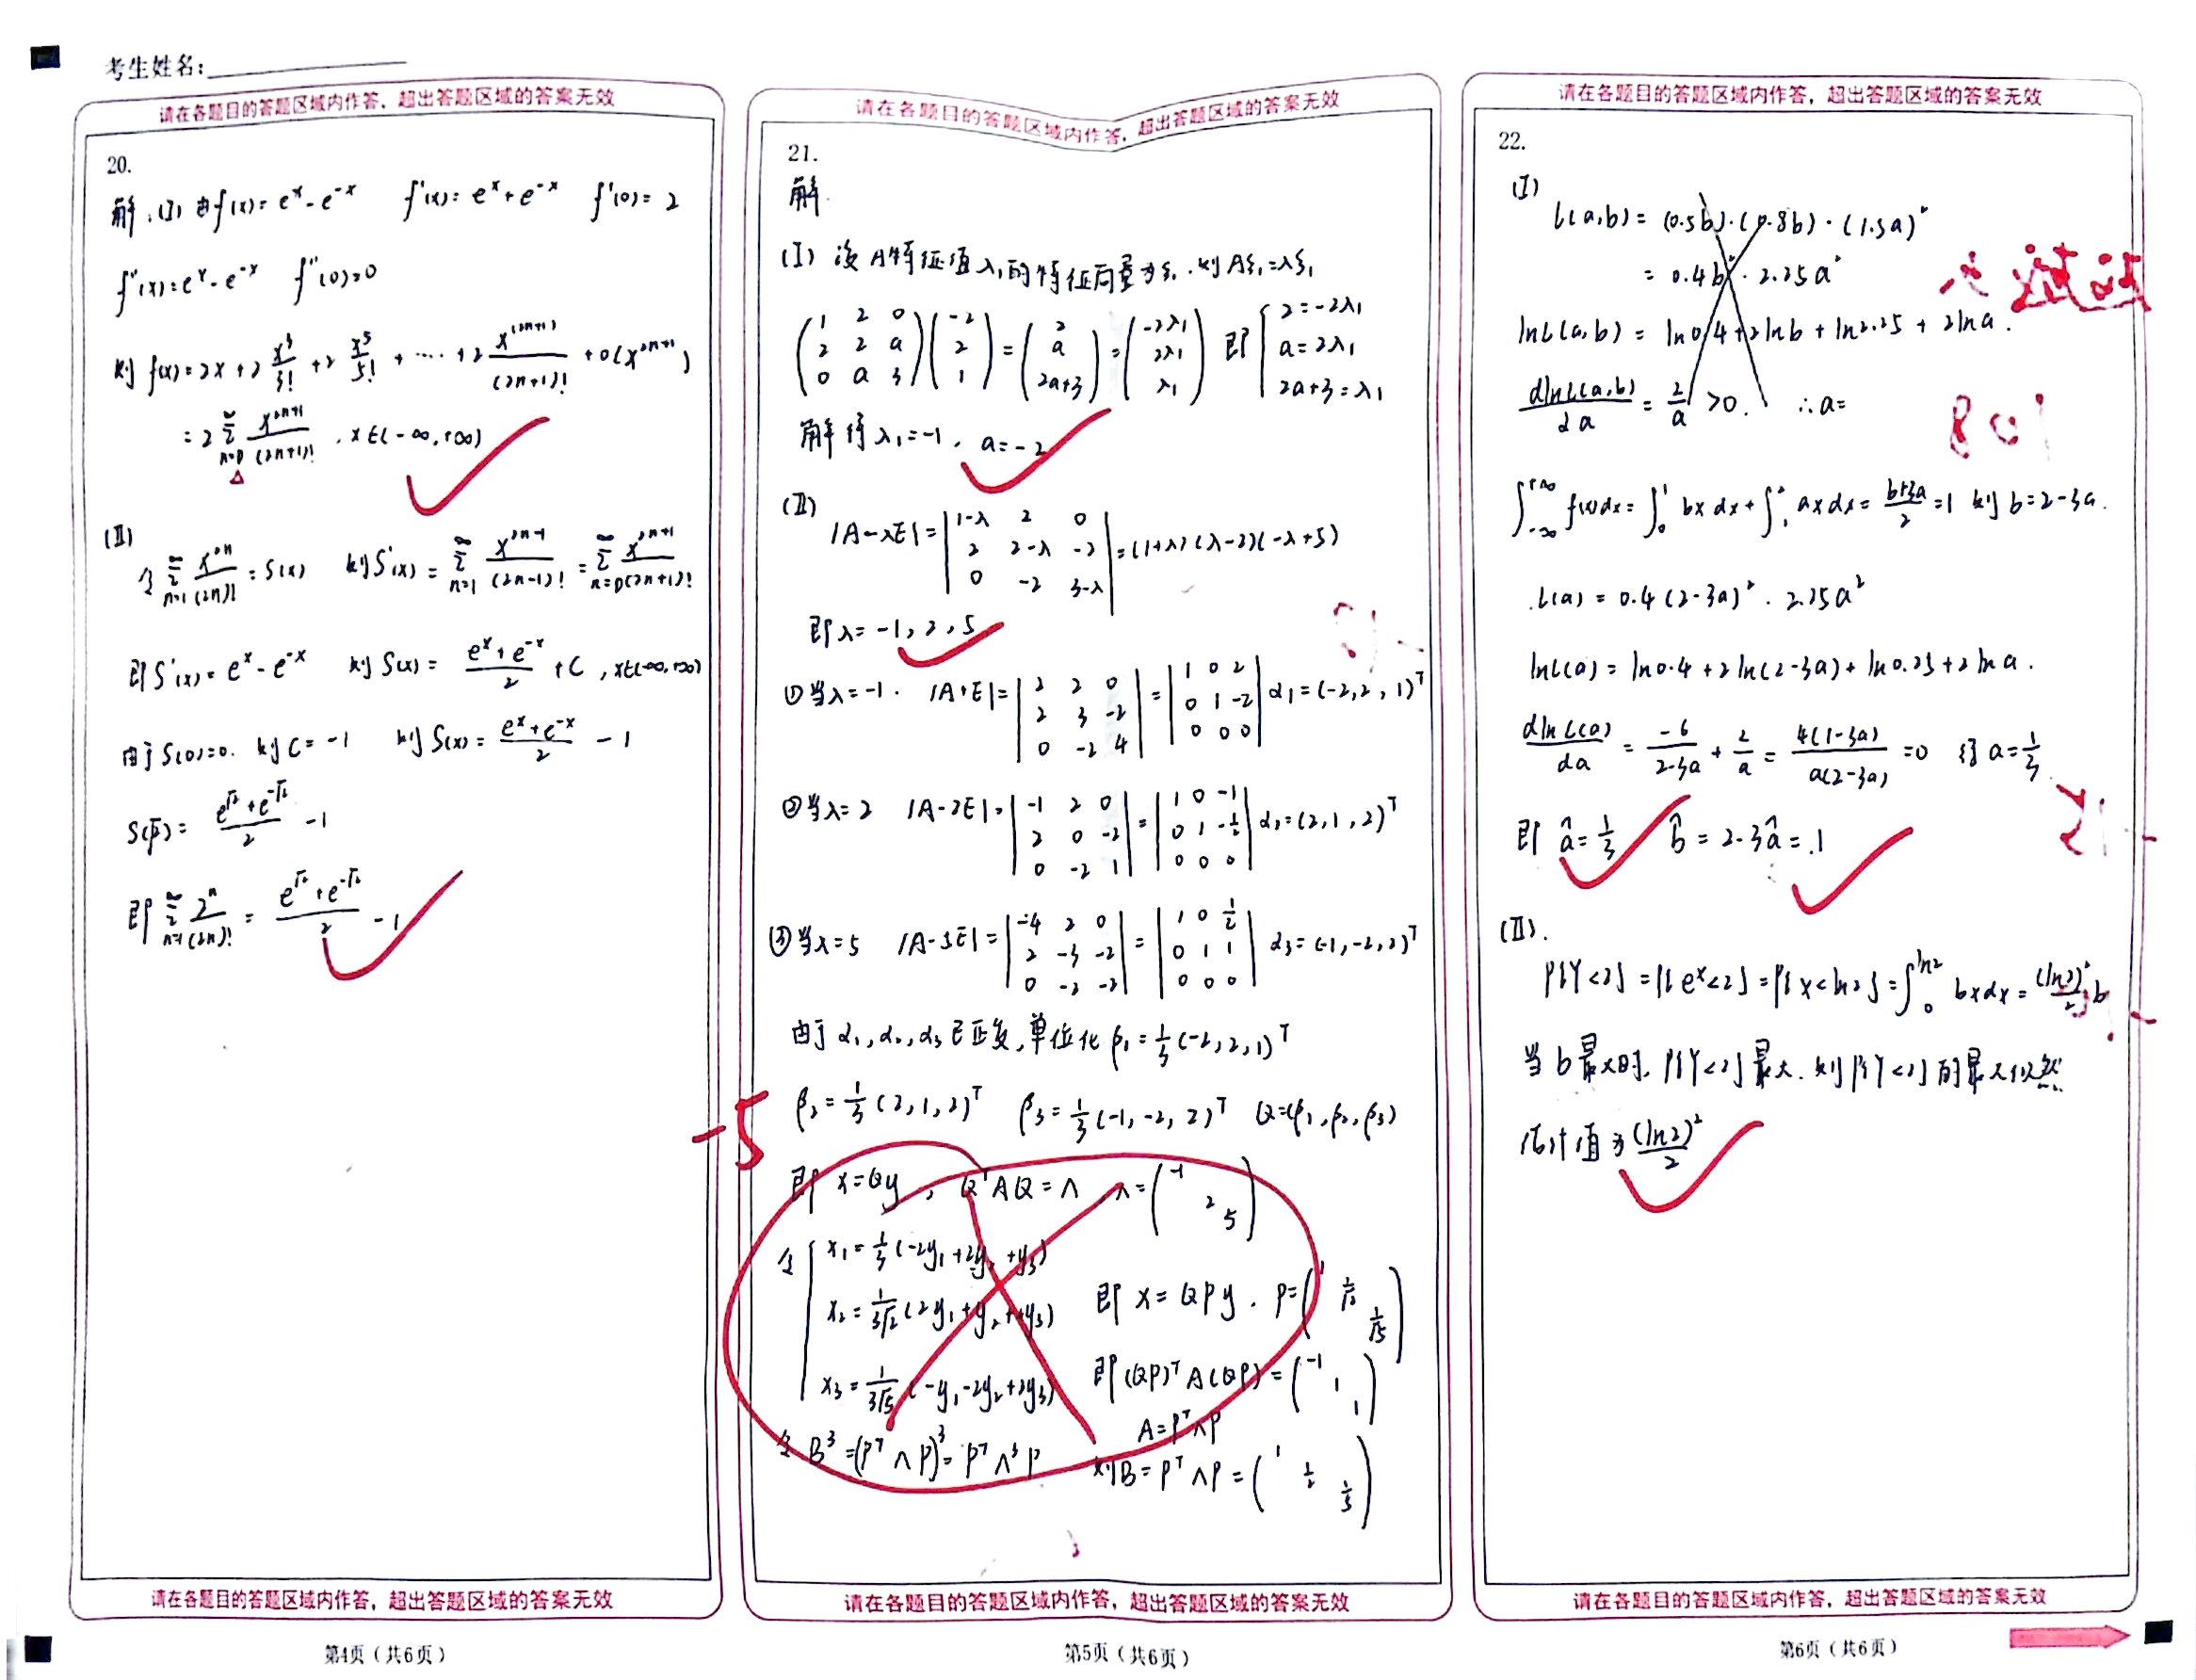 考生姓名:
请在各题目的答题区域内作答,超出答题区域的答案无效
20.
解:(I) 由f(x)=e^x-e^{-x} f'(x)=e^x+e^{-x} f'(0)=2
f''(x)=e^x-e^{-x} f''(0)=0
则f(x)=2x+2\frac{x^3}{3!}+2\frac{x^5}{5!}+⋯+2\frac{x^{(2n+1)}}{(2n+1)!}+o(x^{2n+1})
=2\sum_{n=0}^{∞}\frac{x^{2n+1}}{(2n+1)!}, x∈(-∞,+∞)
(II)
令\sum_{n=1}^{∞}\frac{x^{2n}}{(2n)!}=S(x) 则S'(x)=\sum_{n=1}^{∞}\frac{x^{2n-1}}{(2n-1)!}=\sum_{n=0}^{∞}\frac{x^{2n+1}}{(2n+1)!}
即S'(x)=e^x-e^{-x} 则S(x)=\frac{e^x+e^{-x}}{2}+C, x∈(-∞,+∞)
由于S(0)=0. 则C=-1 则S(x)=\frac{e^x+e^{-x}}{2}-1
S(√2)=\frac{e^{√2}+e^{-√2}}{2}-1
即\sum_{n=1}^{∞}\frac{2^n}{(2n)!}=\frac{e^{√2}+e^{-√2}}{2}-1
请在各题目的答题区域内作答,超出答题区域的答案无效
第4页(共6页)
请在各题目的答题区域内作答,超出答题区域的答案无效
21.
解
(I) 设A特征值λ₁的特征向量为ξ₁.则Aξ₁=λξ₁
(1 2 0; 2 2 a; 0 a 3)(-2; 2; 1)=(2; a; 2a+3)=(-2λ₁; 2λ₁; λ₁) 即{2=-2λ₁; a=2λ₁; 2a+3=λ₁
解得λ₁=-1, a=-2
(II)
|A-λE|=|1-λ 2 0; 2 2-λ -2; 0 -2 3-λ|=(1+λ)(λ-2)(-λ+5)
即λ=-1,2,5
①当λ=-1. |A+E|=|2 2 0; 2 3 -2; 0 -2 4|=|1 0 2; 0 1 -2; 0 0 0| α₁=(-2,2,1)^T
②当λ=2 |A-2E|=|-1 2 0; 2 0 -2; 0 -2 1|=|1 0 -1; 0 1 -\frac{1}{2}; 0 0 0| α₂=(2,1,2)^T
③当λ=5 |A-5E|=|-4 2 0; 2 -3 -2; 0 -2 -2|=|1 0 \frac{1}{2}; 0 1 1; 0 0 0| α₃=(-1,-2,2)^T
由于α₁,α₂,α₃已正交,单位化β₁=\frac{1}{3}(-2,2,1)^T
-5
β₂=\frac{1}{3}(2,1,2)^T β₃=\frac{1}{3}(-1,-2,2)^T Q=(β₁,β₂,β₃)
即 x=Qy, Q^TAQ=Λ, Λ=(-1 2 5)
令{x₁=\frac{1}{3}(-2y₁+2y₂+y₃)
x₂=\frac{1}{3√2}(2y₁+y₂++y₃)
x₃=\frac{1}{3√5}(-y₁-2y₂+2y₃)
即 x=QPy. P=(1 \frac{1}{√2} \frac{1}{√5})
即(QP)^TA(QP)=(-1 1 1)
A=P^TΛP
令B³=(P^TΛP)³=P^TΛ³P
则B=P^TΛP=(1 \frac{1}{2} \frac{1}{5})
请在各题目的答题区域内作答,超出答题区域的答案无效
第5页(共6页)
请在各题目的答题区域内作答,超出答题区域的答案无效
22.
(I)
L(a,b)=(0.5b)·(0.8b)·(1.5a)²
=0.4b²·2.25a²
lnL(a,b)=ln0.4+2lnb+ln2.25+2lna.
\frac{dlnL(a,b)}{da}=\frac{2}{a}>0. ∴a=
801
∫_{-∞}^{+∞}f(x)dx=∫_0^1bxdx+∫_1^2axdx=\frac{b+3a}{2}=1 则b=2-3a.
L(a)=0.4(2-3a)²·2.25a²
lnL(a)=ln0.4+2ln(2-3a)+ln0.25+2lna.
\frac{dlnL(a)}{da}=\frac{-6}{2-3a}+\frac{2}{a}=\frac{4(1-3a)}{a(2-3a)}=0 得a=\frac{1}{3}.
即 â=\frac{1}{3} b̂=2-3â=1
(II).
P{Y<2}=P{e^x<2}=P{x<ln2}=∫_0^{ln2}bxdx=\frac{(ln2)²}{2}b
当b最大时,P{Y<2}最大.则P{Y<2}的最大似然
估计值为\frac{(ln2)²}{2}
请在各题目的答题区域内作答,超出答题区域的答案无效
第6页(共6页)